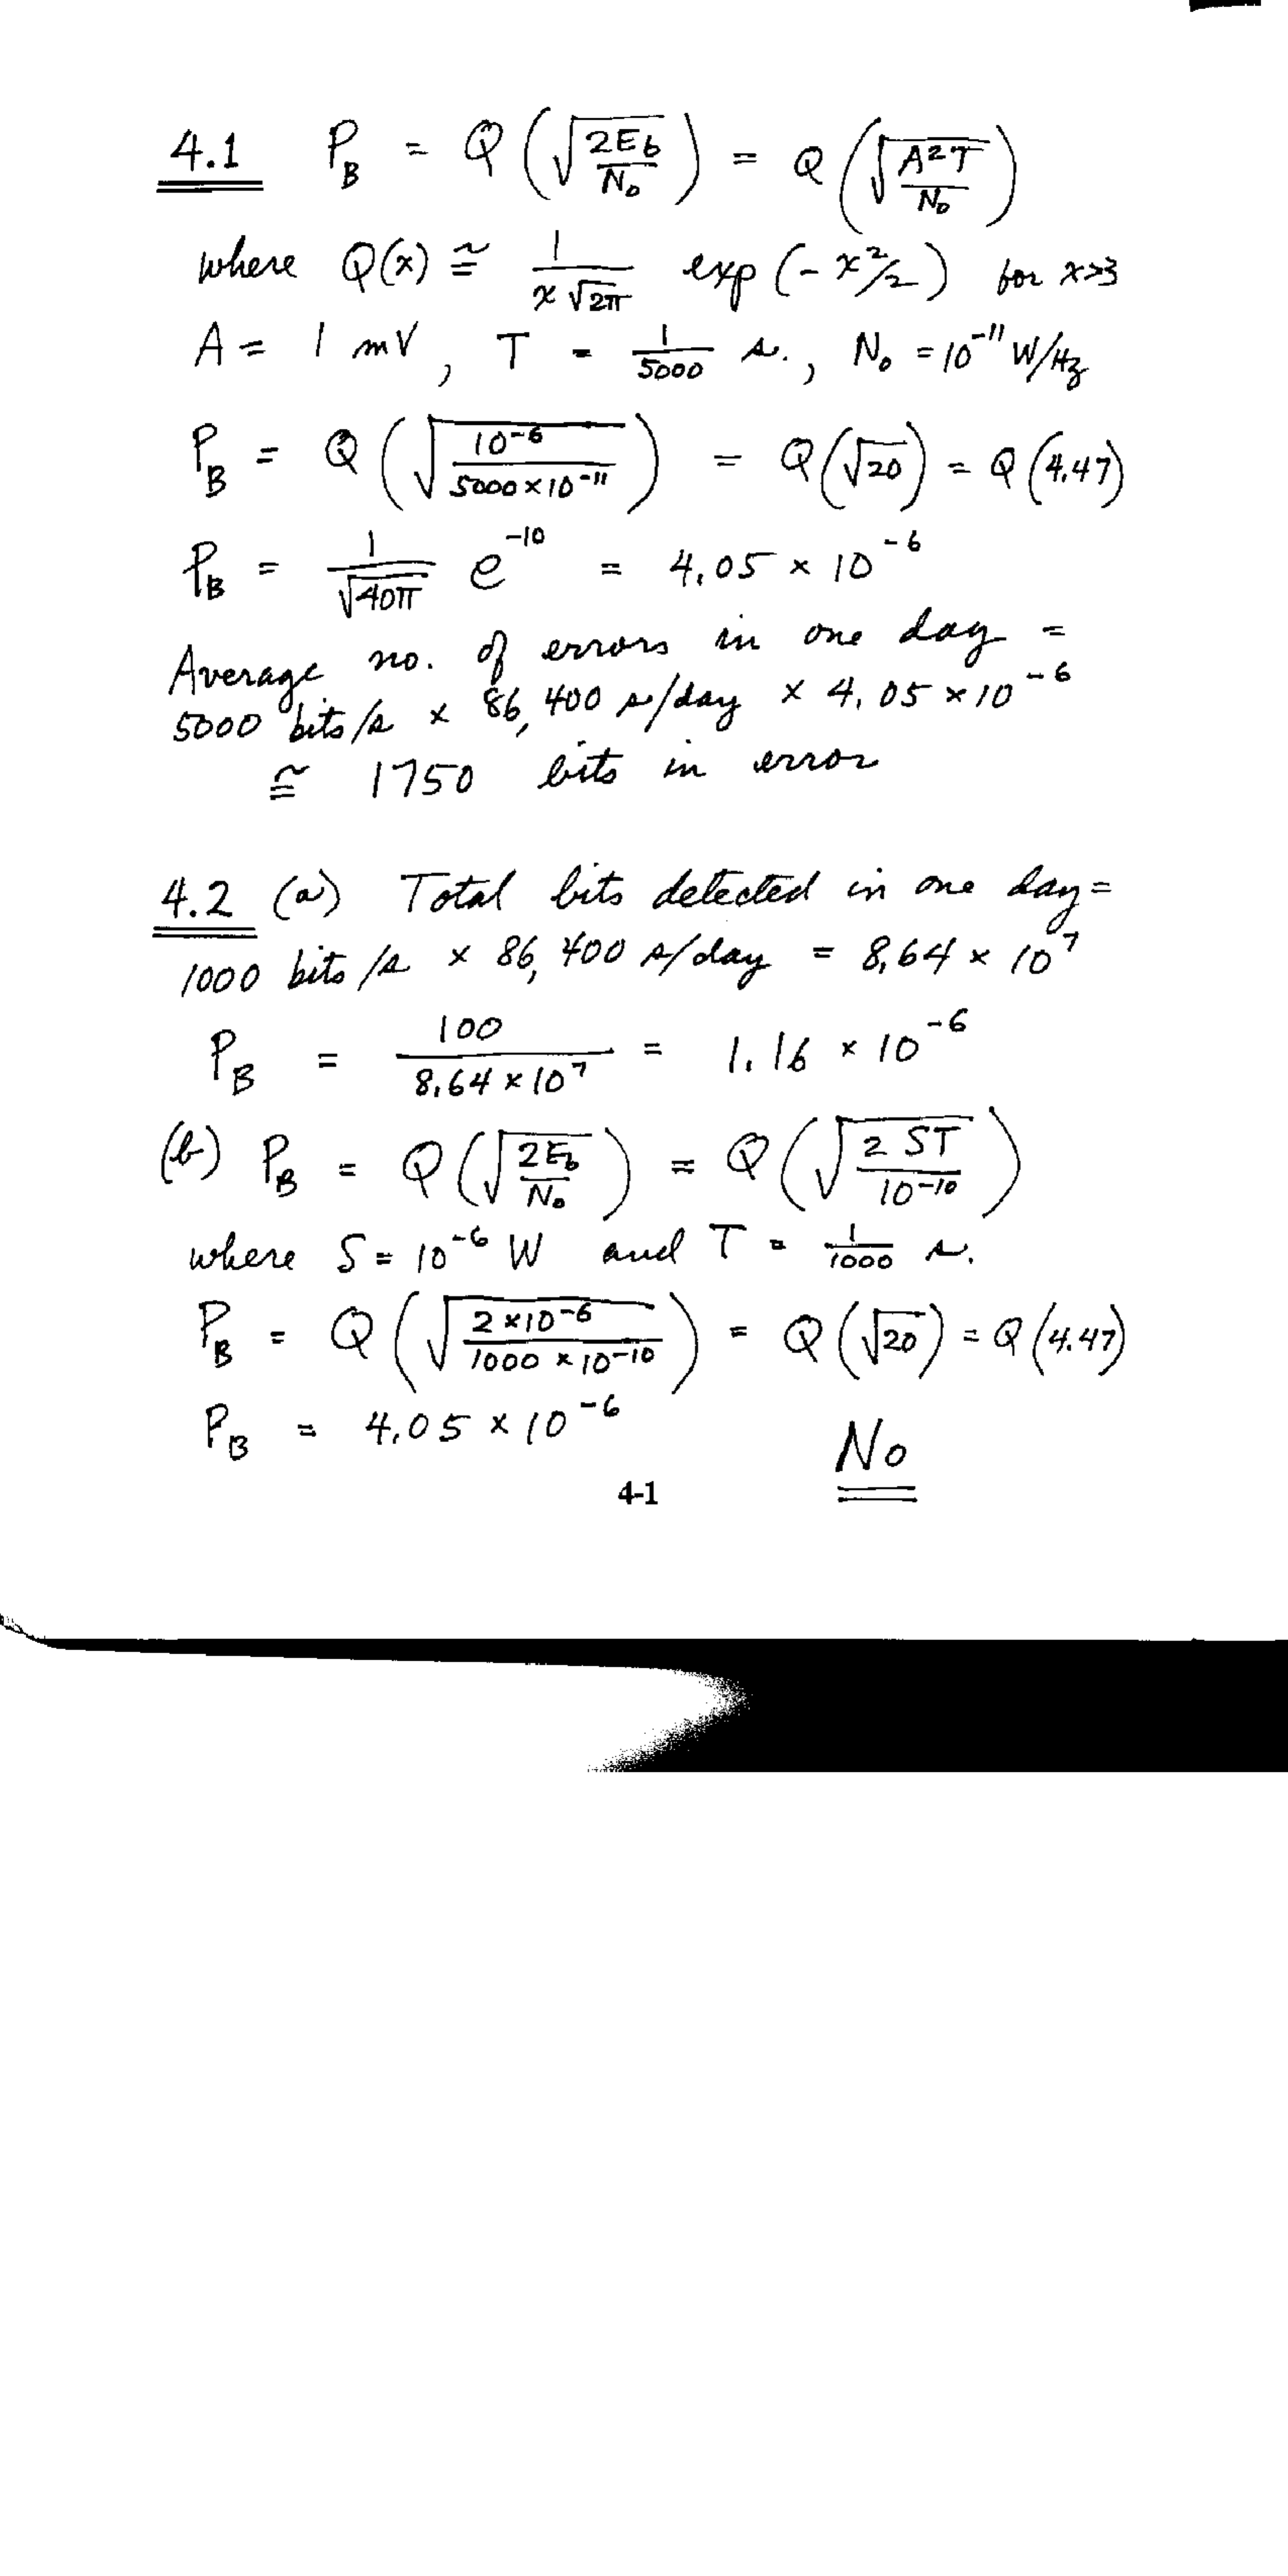 4.1 P_B = Q(√(2E_b/N_0)) = Q(√(A²T/N_0))
where Q(x) ≅ 1/(x√(2π)) exp(-x²/2) for x>3
A = 1 mV, T = 1/5000 s., N_0 = 10^-11 W/Hz
P_B = Q(√(10^-6/(5000×10^-11))) = Q(√20) = Q(4.47)
P_B = 1/√(40π) e^-10 = 4.05 × 10^-6
Average no. of errors in one day =
5000 bits/s × 86,400 s/day × 4.05 × 10^-6
≅ 1750 bits in error
4.2 (a) Total bits detected in one day =
1000 bits/s × 86,400 s/day = 8.64 × 10^7
P_B = 100/(8.64 × 10^7) = 1.16 × 10^-6
(b) P_B = Q(√(2E_b/N_0)) = Q(√(2 ST/10^-10))
where S = 10^-6 W and T = 1/1000 s.
P_B = Q(√(2×10^-6/(1000 × 10^-10))) = Q(√20) = Q(4.47)
P_B = 4.05 × 10^-6
No
4-1